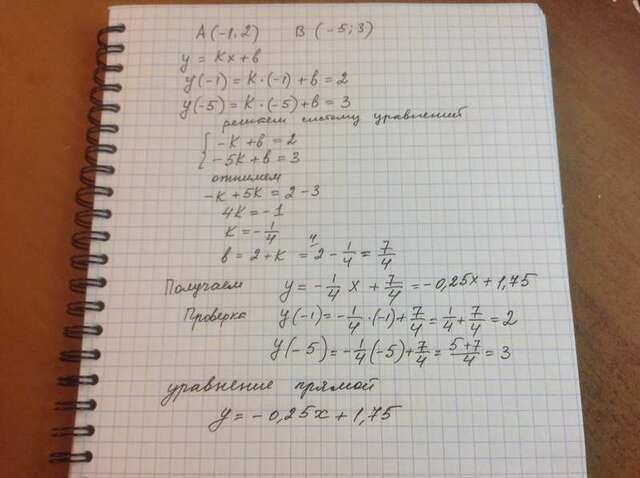 A (-1; 2) B (-5; 3)
y = Kx + b
y(-1) = K·(-1) + b = 2
y(-5) = K·(-5) + b = 3
решаем систему уравнений
{ -K + b = 2
-5K + b = 3
отнимем
-K + 5K = 2 - 3
4K = -1
K = -1/4
b = 2 + K = 2 - 1/4 = 7/4
Получаем y = -1/4 x + 7/4 = -0,25x + 1,75
Проверка y(-1) = -1/4·(-1) + 7/4 = 1/4 + 7/4 = 2
y(-5) = -1/4(-5) + 7/4 = (5+7)/4 = 3
уравнение прямой
y = -0,25x + 1,75